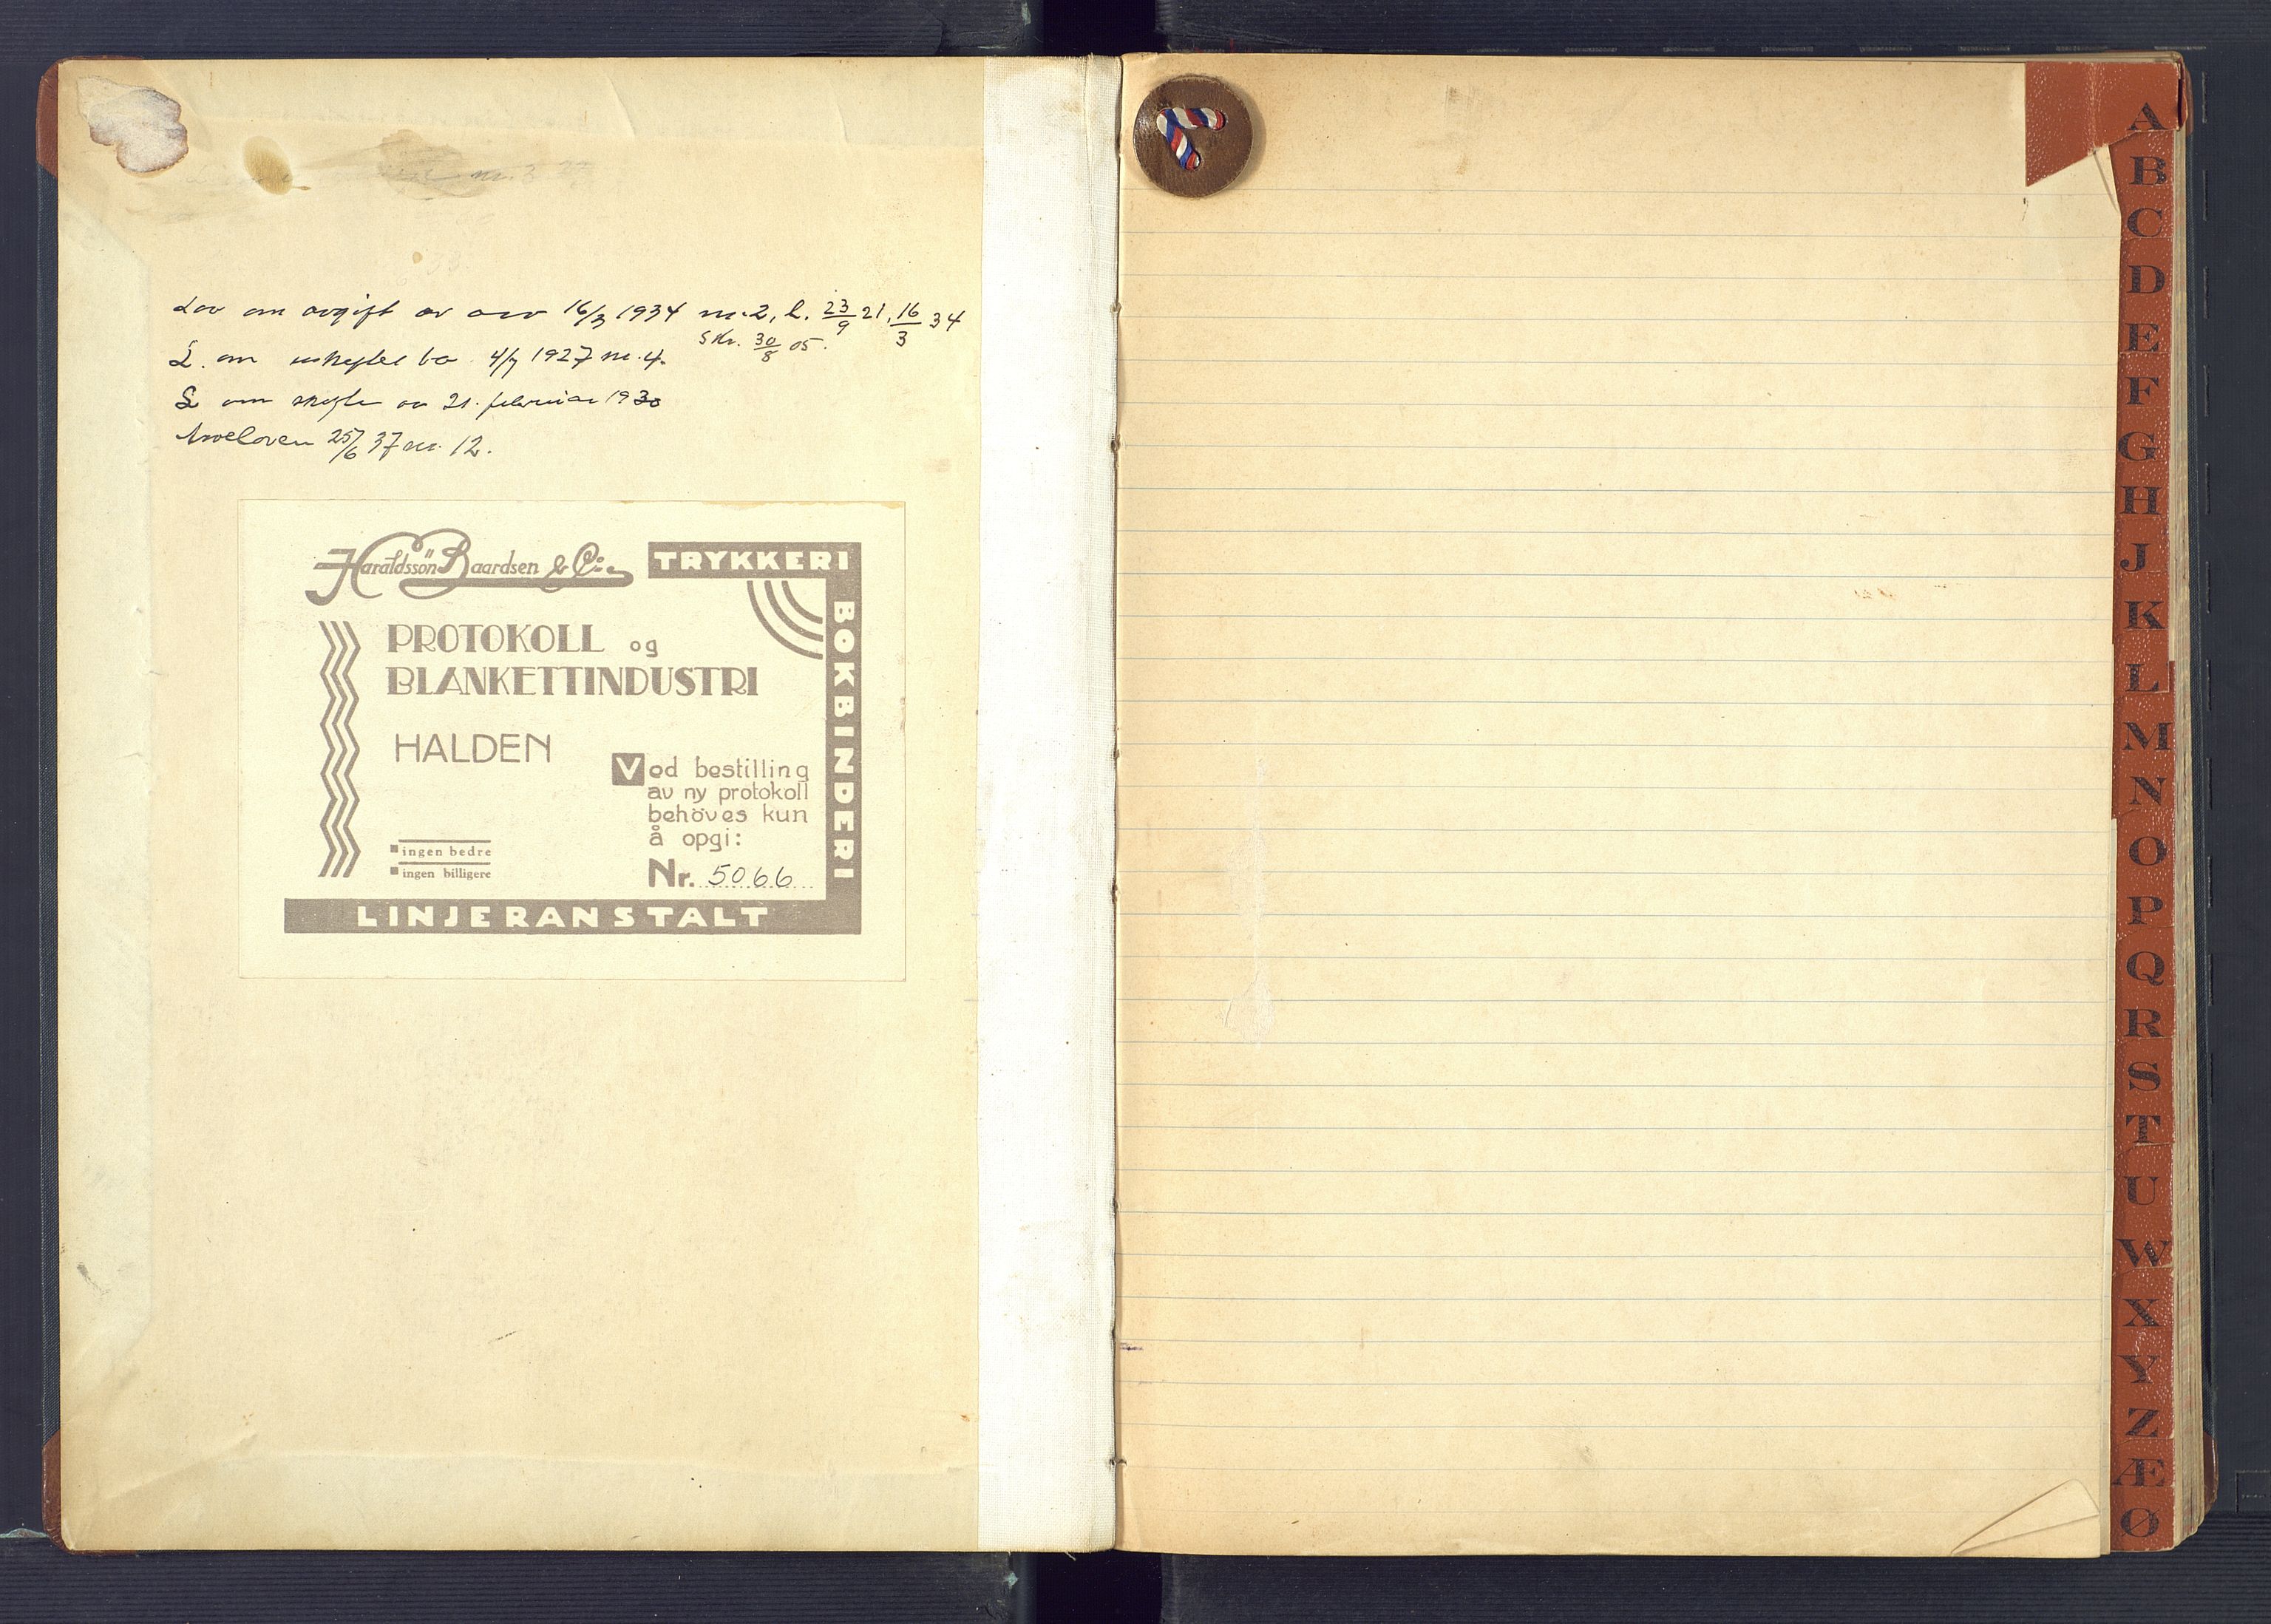 Lov om avgift av arv 16/3 1934 nr. 2, l. 23/9 21, 16/3 34
Skr. 30/8 05.
L. om uskiftet bo 4/7 1927 nr. 4.
L om skifte av 21. februar 1930
Arveloven 25/6 37 nr. 12.
Haraldssön Baardsen & Co.
TRYKKERI
BOKBINDERI
PROTOKOLL og
BLANKETTINDUSTRI
HALDEN
Ved bestilling
av ny protokoll
behöves kun
å opgi:
Nr. 5066
ingen bedre
ingen billigere
LINJERANSTALT
A
B
C
D
E
F
G
H
J
K
L
M
N
O
P
Q
R
S
T
U
W
X
Y
Z
Æ
Ø